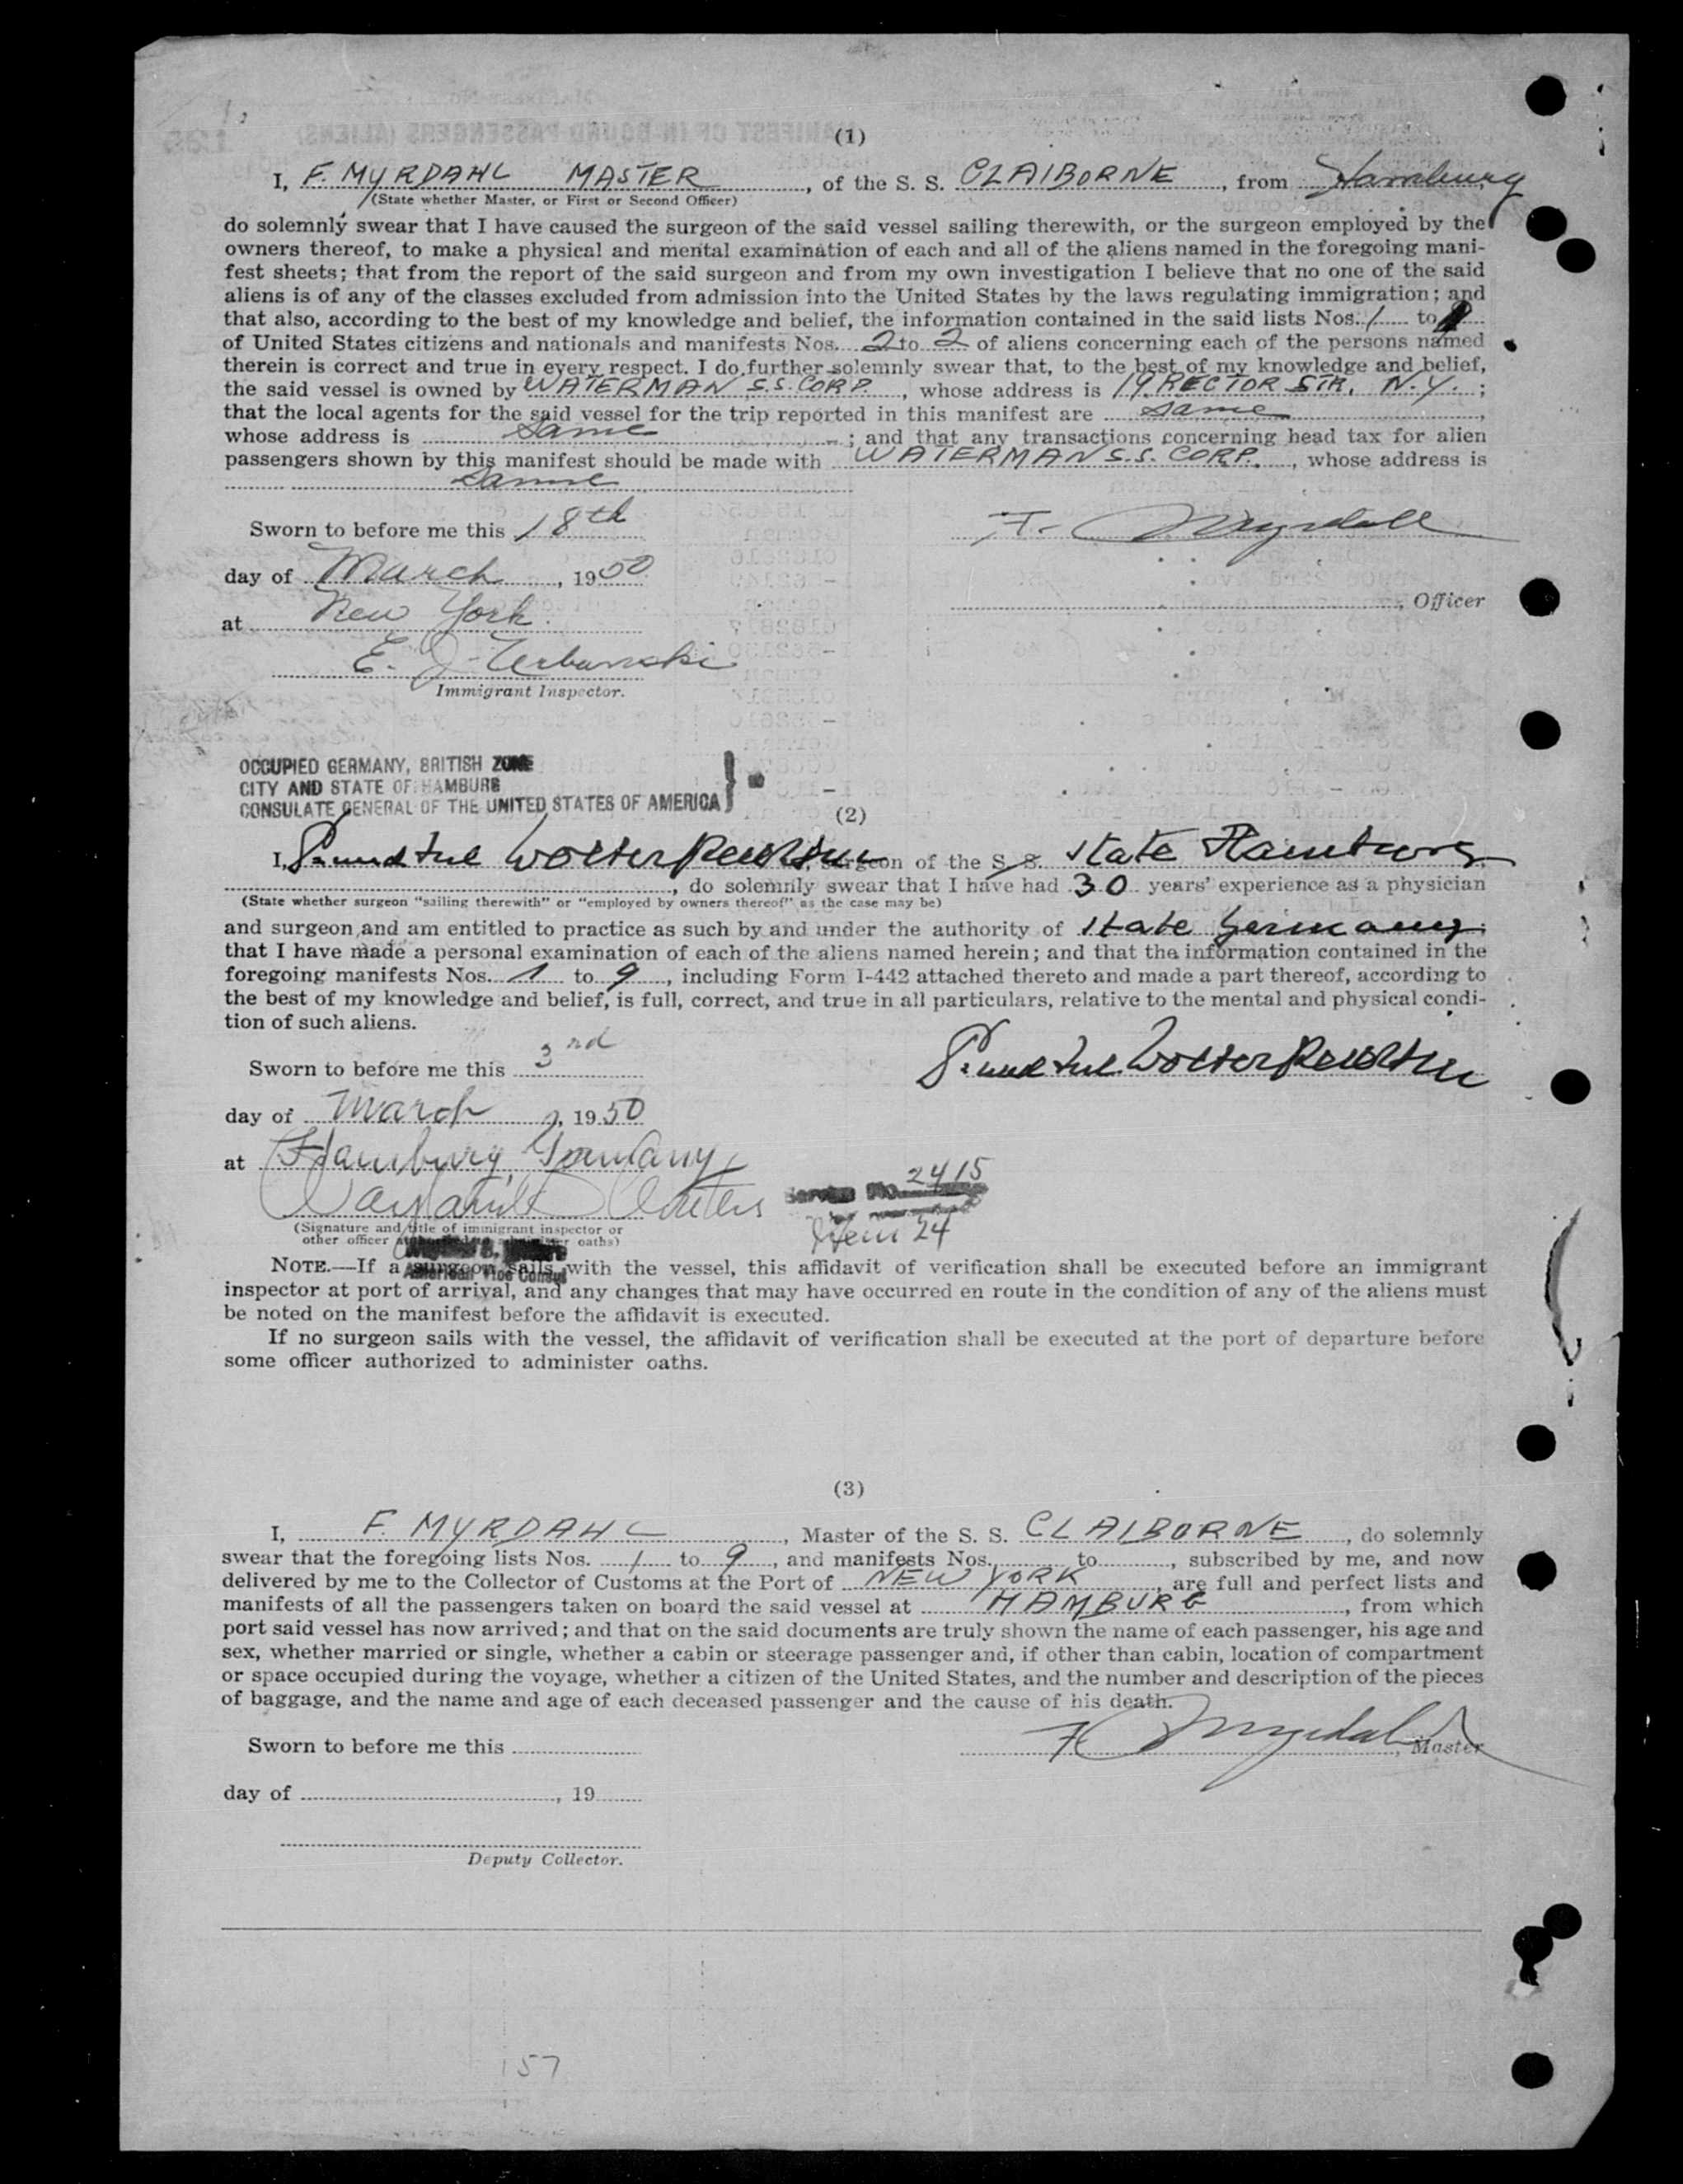 (1)
I, F. MYRDAHL MASTER, of the S. S. CLAIBORNE, from Hamburg
(State whether Master, or First or Second Officer)
do solemnly swear that I have caused the surgeon of the said vessel sailing therewith, or the surgeon employed by the
owners thereof, to make a physical and mental examination of each and all of the aliens named in the foregoing mani-
fest sheets; that from the report of the said surgeon and from my own investigation I believe that no one of the said
aliens is of any of the classes excluded from admission into the United States by the laws regulating immigration; and
that also, according to the best of my knowledge and belief, the information contained in the said lists Nos. 1 to
of United States citizens and nationals and manifests Nos. 2 to 2 of aliens concerning each of the persons named
therein is correct and true in every respect. I do further solemnly swear that, to the best of my knowledge and belief,
the said vessel is owned by WATERMAN S.S. CORP., whose address is 19 RECTOR STR. N.Y. ;
that the local agents for the said vessel for the trip reported in this manifest are same,
whose address is same ; and that any transactions concerning head tax for alien
passengers shown by this manifest should be made with WATERMAN S.S. CORP., whose address is
same
Sworn to before me this 18th
F. Myrdahl
day of March, 1950
, Officer
at New York.
E. J. Urbanski
Immigrant Inspector.
OCCUPIED GERMANY, BRITISH ZONE
CITY AND STATE OF HAMBURG
CONSULATE GENERAL OF THE UNITED STATES OF AMERICA
(2)
I, Wolter, surgeon of the S. S. State Hamburg
, do solemnly swear that I have had 30 years' experience as a physician
(State whether surgeon "sailing therewith" or "employed by owners thereof" as the case may be)
and surgeon and am entitled to practice as such by and under the authority of State Germany;
that I have made a personal examination of each of the aliens named herein; and that the information contained in the
foregoing manifests Nos. 1 to 9, including Form I-442 attached thereto and made a part thereof, according to
the best of my knowledge and belief, is full, correct, and true in all particulars, relative to the mental and physical condi-
tion of such aliens.
Sworn to before me this 3rd
Wolter
day of March, 1950
at Hamburg, Germany
Service No. 2415
(Signature and title of immigrant inspector or
other officer authorized to administer oaths)
Item 24
American Vice Consul
NOTE.—If a surgeon sails with the vessel, this affidavit of verification shall be executed before an immigrant
inspector at port of arrival, and any changes that may have occurred en route in the condition of any of the aliens must
be noted on the manifest before the affidavit is executed.
If no surgeon sails with the vessel, the affidavit of verification shall be executed at the port of departure before
some officer authorized to administer oaths.
(3)
I, F. MYRDAHL, Master of the S. S. CLAIBORNE, do solemnly
swear that the foregoing lists Nos. 1 to 9, and manifests Nos. to, subscribed by me, and now
delivered by me to the Collector of Customs at the Port of NEW YORK, are full and perfect lists and
manifests of all the passengers taken on board the said vessel at HAMBURG, from which
port said vessel has now arrived; and that on the said documents are truly shown the name of each passenger, his age and
sex, whether married or single, whether a cabin or steerage passenger and, if other than cabin, location of compartment
or space occupied during the voyage, whether a citizen of the United States, and the number and description of the pieces
of baggage, and the name and age of each deceased passenger and the cause of his death.
Sworn to before me this
F. Myrdahl, Master
day of , 19
Deputy Collector.
157